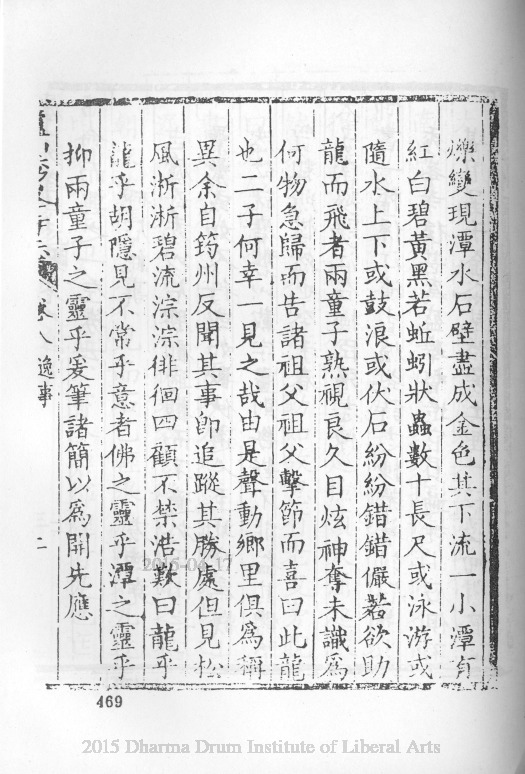 爍變現潭水石壁盡成金色其下流一小潭有
紅白碧黃黑若蚯蚓狀蟲數十長尺或泳游或
隨水上下或鼓浪或伏石紛紛錯錯儼若欲助
龍而飛者兩童子熟視良久目炫神奪未識為
何物急歸而告諸祖父祖父擊節而喜曰此龍
也二子何幸一見之哉由是聲動鄉里俱為稱
異余自筠州反聞其事卽追蹤其勝處但見松
風淅淅碧流淙淙徘徊四顧不禁浩歎曰龍乎
龍乎胡隱見不常乎意者佛之靈乎潭之靈乎
抑兩童子之靈乎爰筆諸簡以為開先應
卷八 逸事
二
469
2015-04-17
2015 Dharma Drum Institute of Liberal Arts